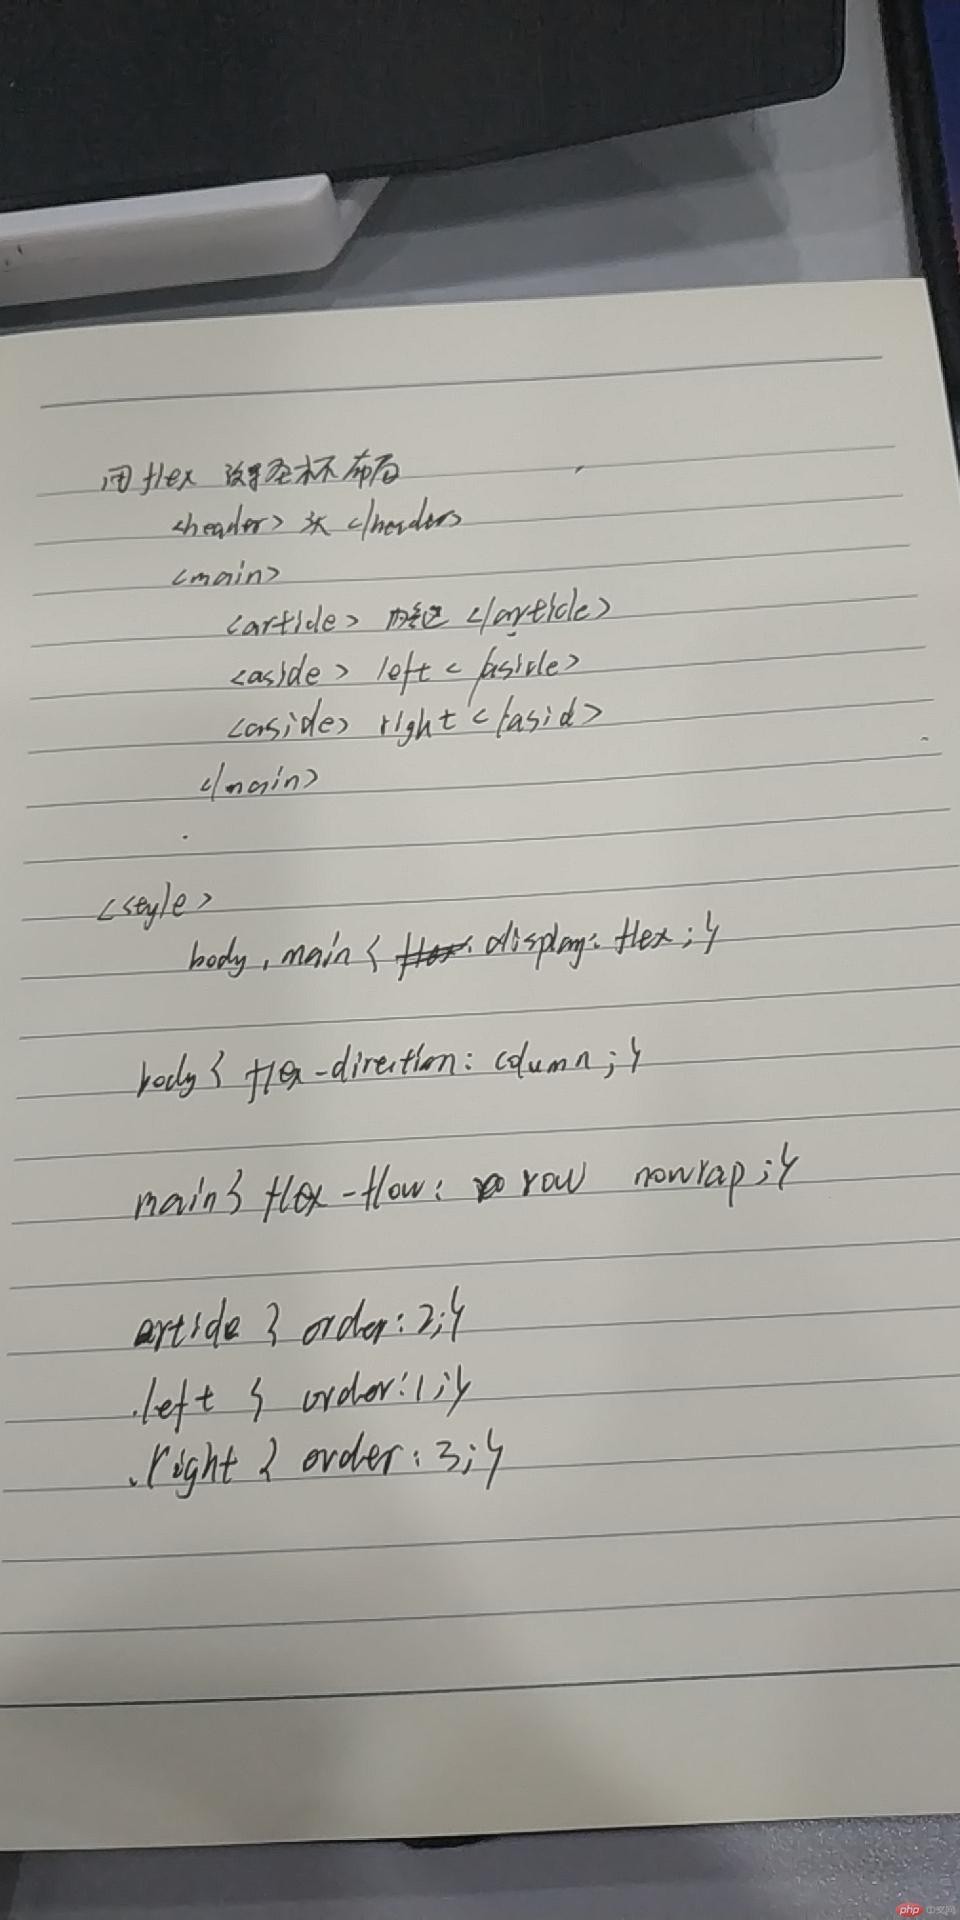 用flex 改写圣杯布局
<header> 头 </header>
<main>
<article> 内容区 </article>
<aside> left </aside>
<aside> right </asid>
</main>
<style>
body, main { display: flex; }
body { flex-direction: column; }
main } flex-flow: row nowrap; }
article } order: 2; }
.left { order: 1; }
.right { order: 3; }
php 中文网